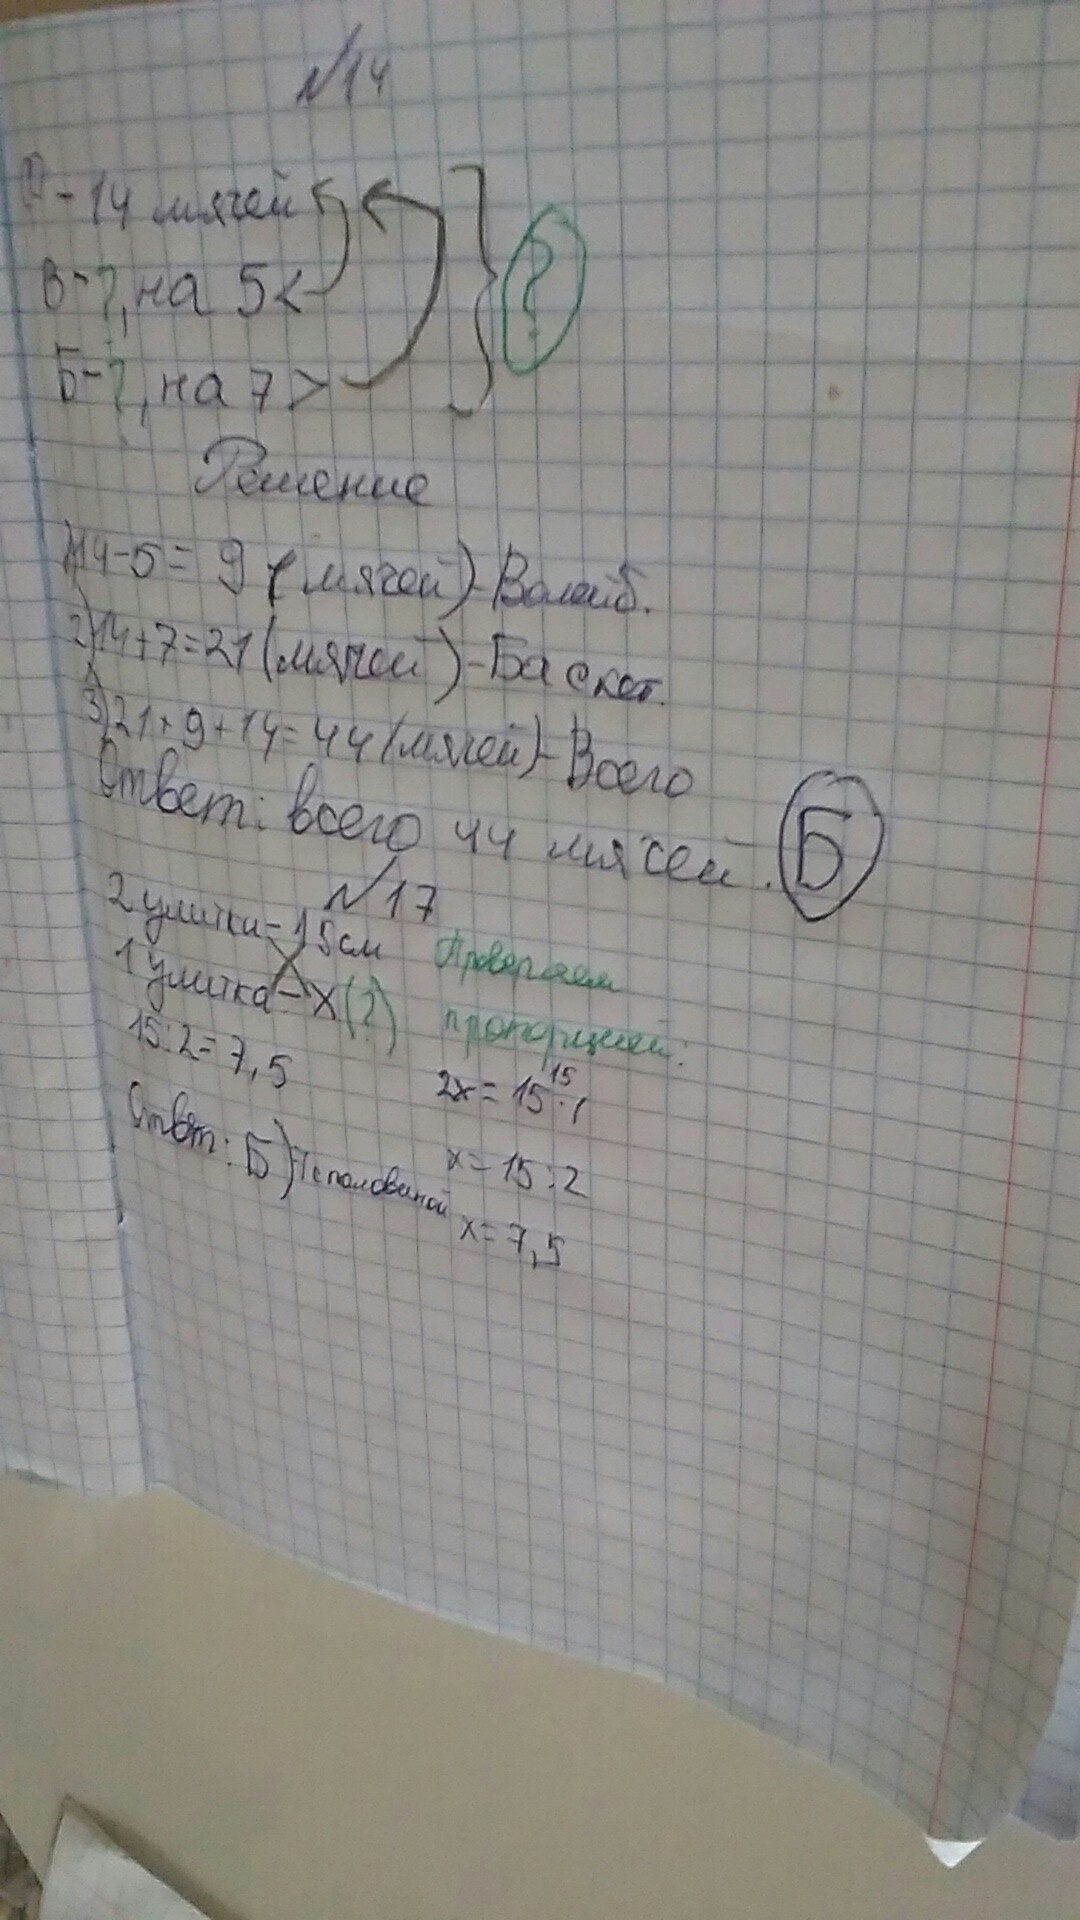 №14
Ф - 14 мячей
В - ?, на 5 <
Б - ?, на 7 >
?
Решение
1) 14 - 5 = 9 (мячей) - Волейб.
2) 14 + 7 = 21 (мячей) - Баскет.
3) 21 + 9 + 14 = 44 (мячей) - Всего
Ответ: всего 44 мячей. Б
№17
2 улитки - 15 см
1 улитка - х (?)
15 : 2 = 7,5
Ответ: Б) 7 с половиной
Проверяем
пропорцией:
2х = 15 · 1
15
х = 15 : 2
х = 7,5